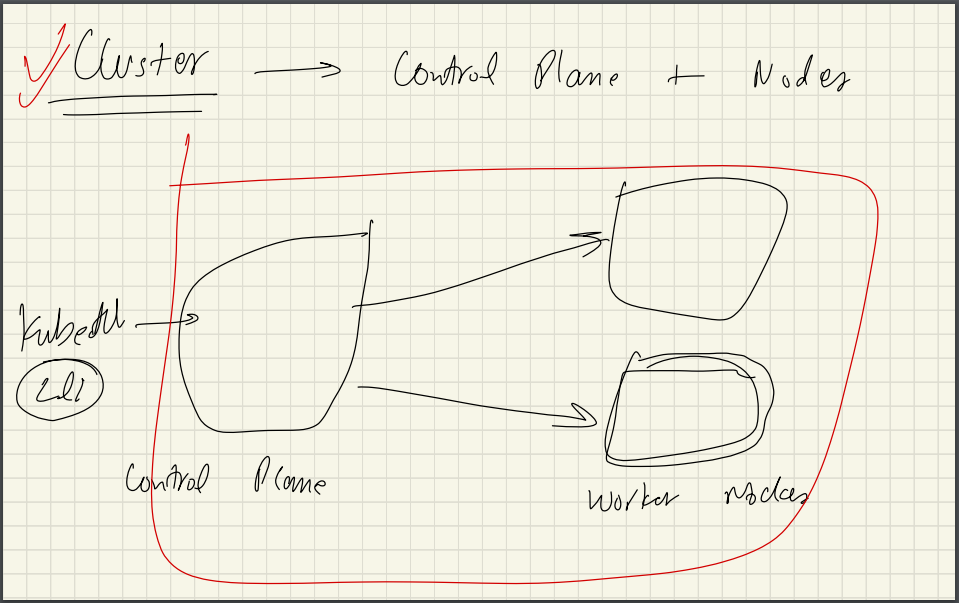 Cluster → Control Plane + Nodes
Kubectl
cli
Control Plane
Worker nodes